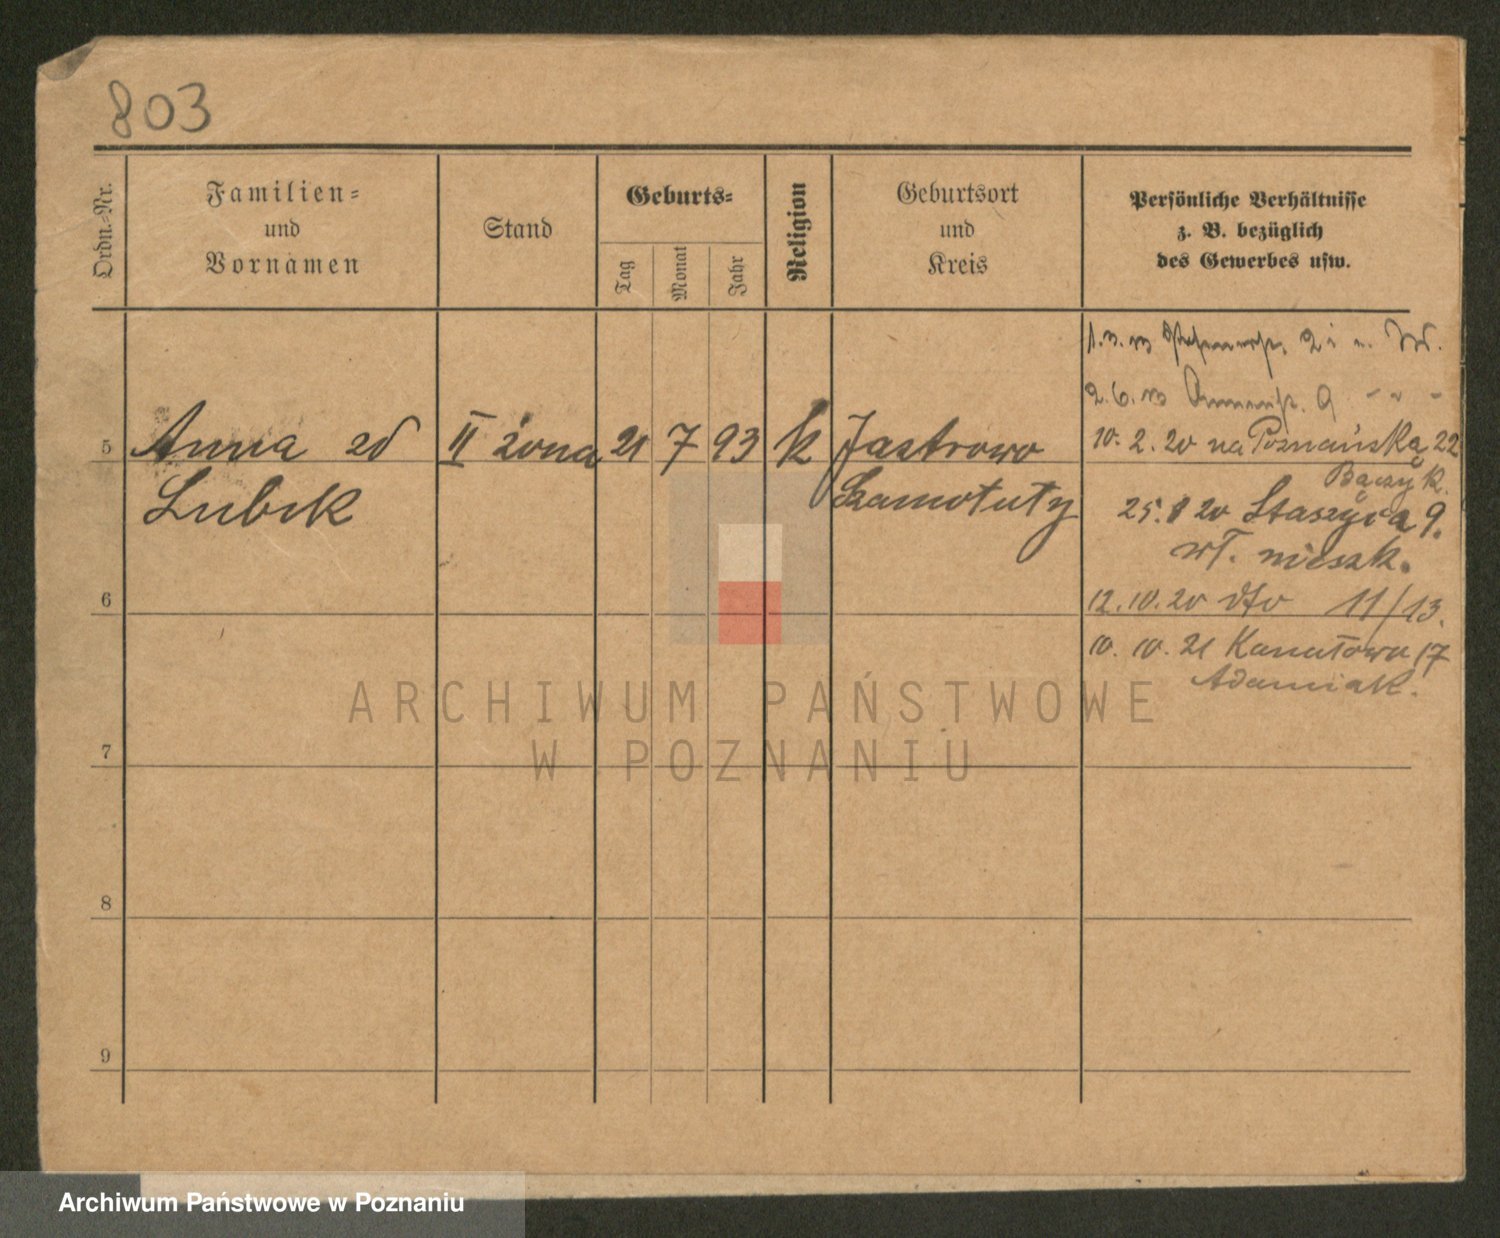 803
Ordn.-Nr.
Familien-
und
Vornamen
Stand
Geburts-
Tag
Monat
Jahr
Religion
Geburtsort
und
Kreis
Persönliche Verhältnisse
z. B. bezüglich
des Gewerbes usw.
5
Anna zd
Lubik
II żona
21
7
93
k
Jastrowo
Szamotuły
10. 2. 20 na Poznańską 22
Bączyk.
25. 8 20 Staszyca 9.
wł. mieszk.
6
12. 10. 20 dto 11/13.
10. 10. 21 Kanałowa 17
Adamiak.
ARCHIWUM PAŃSTWOWE
W POZNANIU
7
8
9
Archiwum Państwowe w Poznaniu